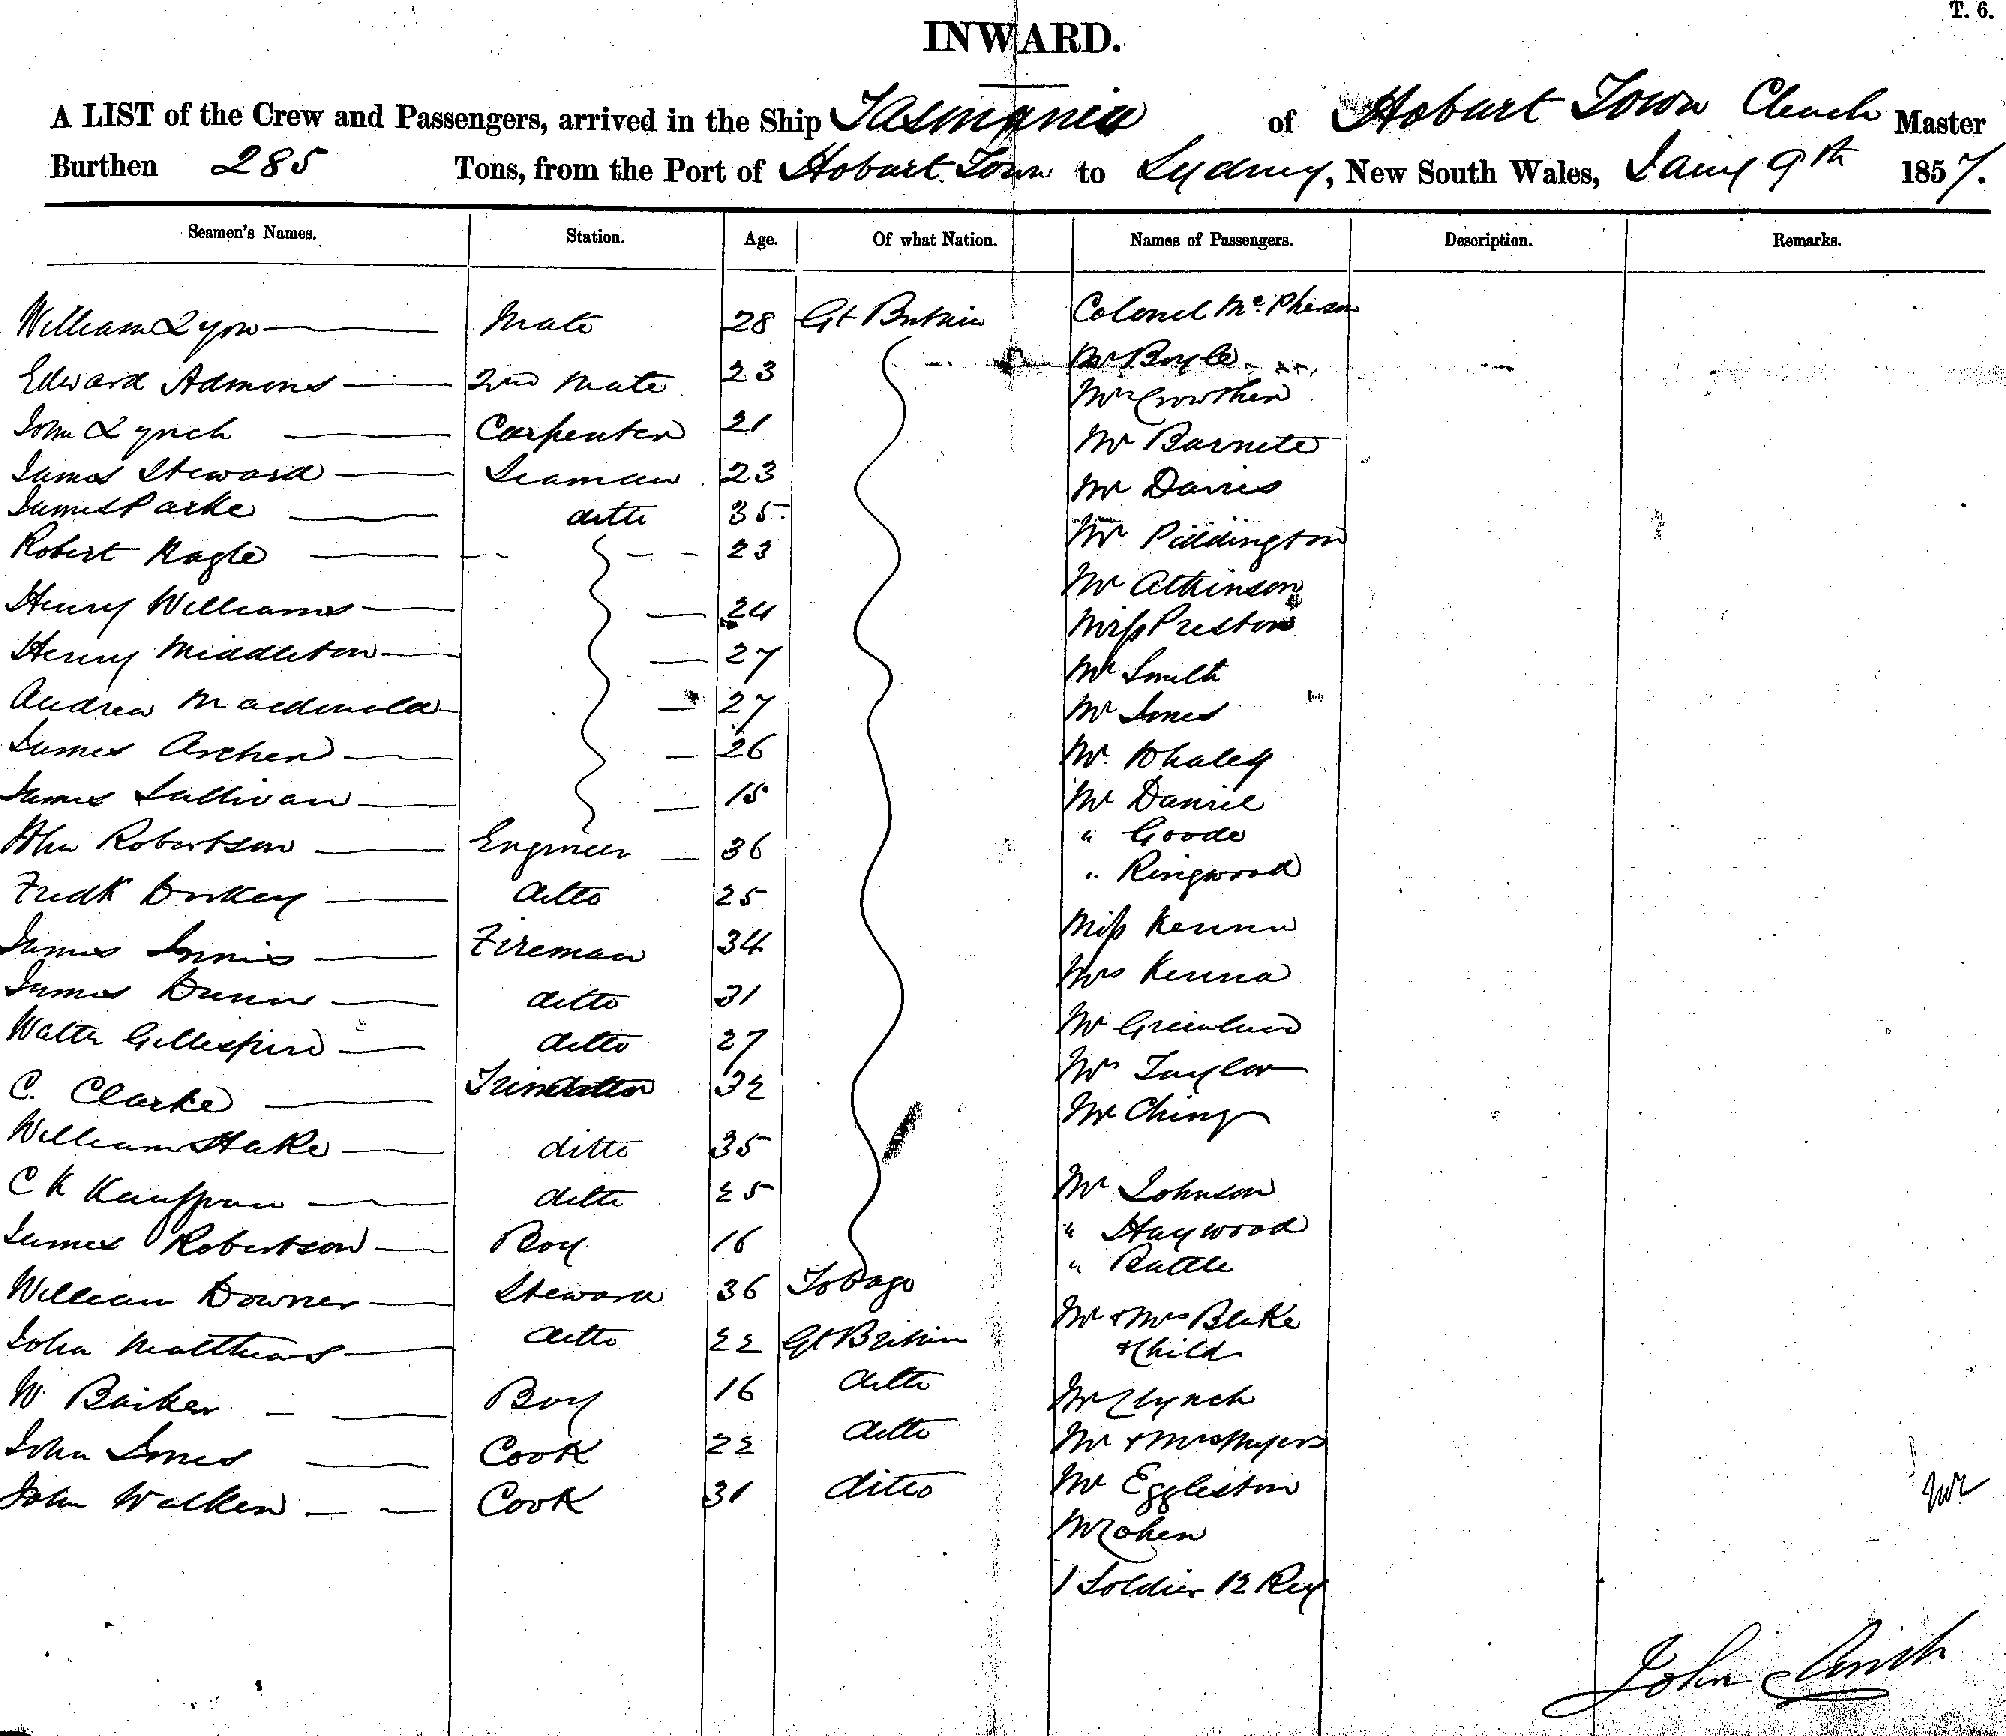 T. 6.
INWARD.
A LIST of the Crew and Passengers, arrived in the Ship Tasmania of Hobart Town Clinch Master
Burthen 285 Tons, from the Port of Hobart Town to Sydney, New South Wales, Jany 9th 1857.
Seamen's Names. Station. Age. Of what Nation. Names of Passengers. Description. Remarks.
William Lyon Mate 28 Gt Britain Colonel McPherson
Mr Boyle
Edward Admons 2nd Mate 23
Mr Crowther
John Lynch Carpenter 21
Mr Barnete
James Steward Seaman 23
Mr Davies
James Parke ditto 35
Mr Piddington
Robert Nagle 23
Mr Atkinson
Henry Williams 24
Miss Preston
Henry Middleton 27
Mr Smith
Andrew Macdonald 27
Mr Jones
James Archer 26
Mr Whaley
James Sullivan 15
Mr Daniel
" Goode
John Robertson Engineer 36
" Ringwood
Fredk ditto 25
Miss Kenna
James Innis Fireman 34
Mrs Kenna
James Dunn ditto 31
Mr
Walter Gillespie ditto 27
Mr Taylor
C. Clarke 32
Mr Ching
William Hake ditto 35
Mr Johnson
C K Kauffman ditto 25
" Haywood
James Robertson Boy 16
" Rattle
William Downer Steward 36 Tobago
Mr & Mrs Blake
John Matthews ditto 22 Gt Britain
& Child
W Barker Boy 16 ditto
Mr Clynch
John Jones Cook 22 ditto
Mr & Mrs Myers
John Walker Cook 31 ditto
Mr Eggleston
Mr Cohen
1 Soldier 12 Reg
John Clinch